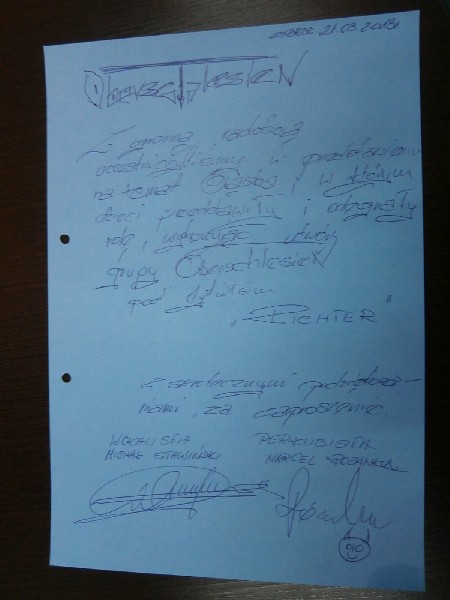 21.03.2013r.
Oberschlesien
Z ogromną radością
uczestniczyliśmy w przedstawieniu
na temat Śląska, w którym
dzieci przedstawiły i odegrały
rolę, wykonując utwór
grupy Oberschlesien
pod tytułem
"RICHTER"
z serdecznymi podzięko-
waniami za zaproszenie.
WOKALISTA PERKUSISTA
MICHAŁ STAWIŃSKI MARCEL